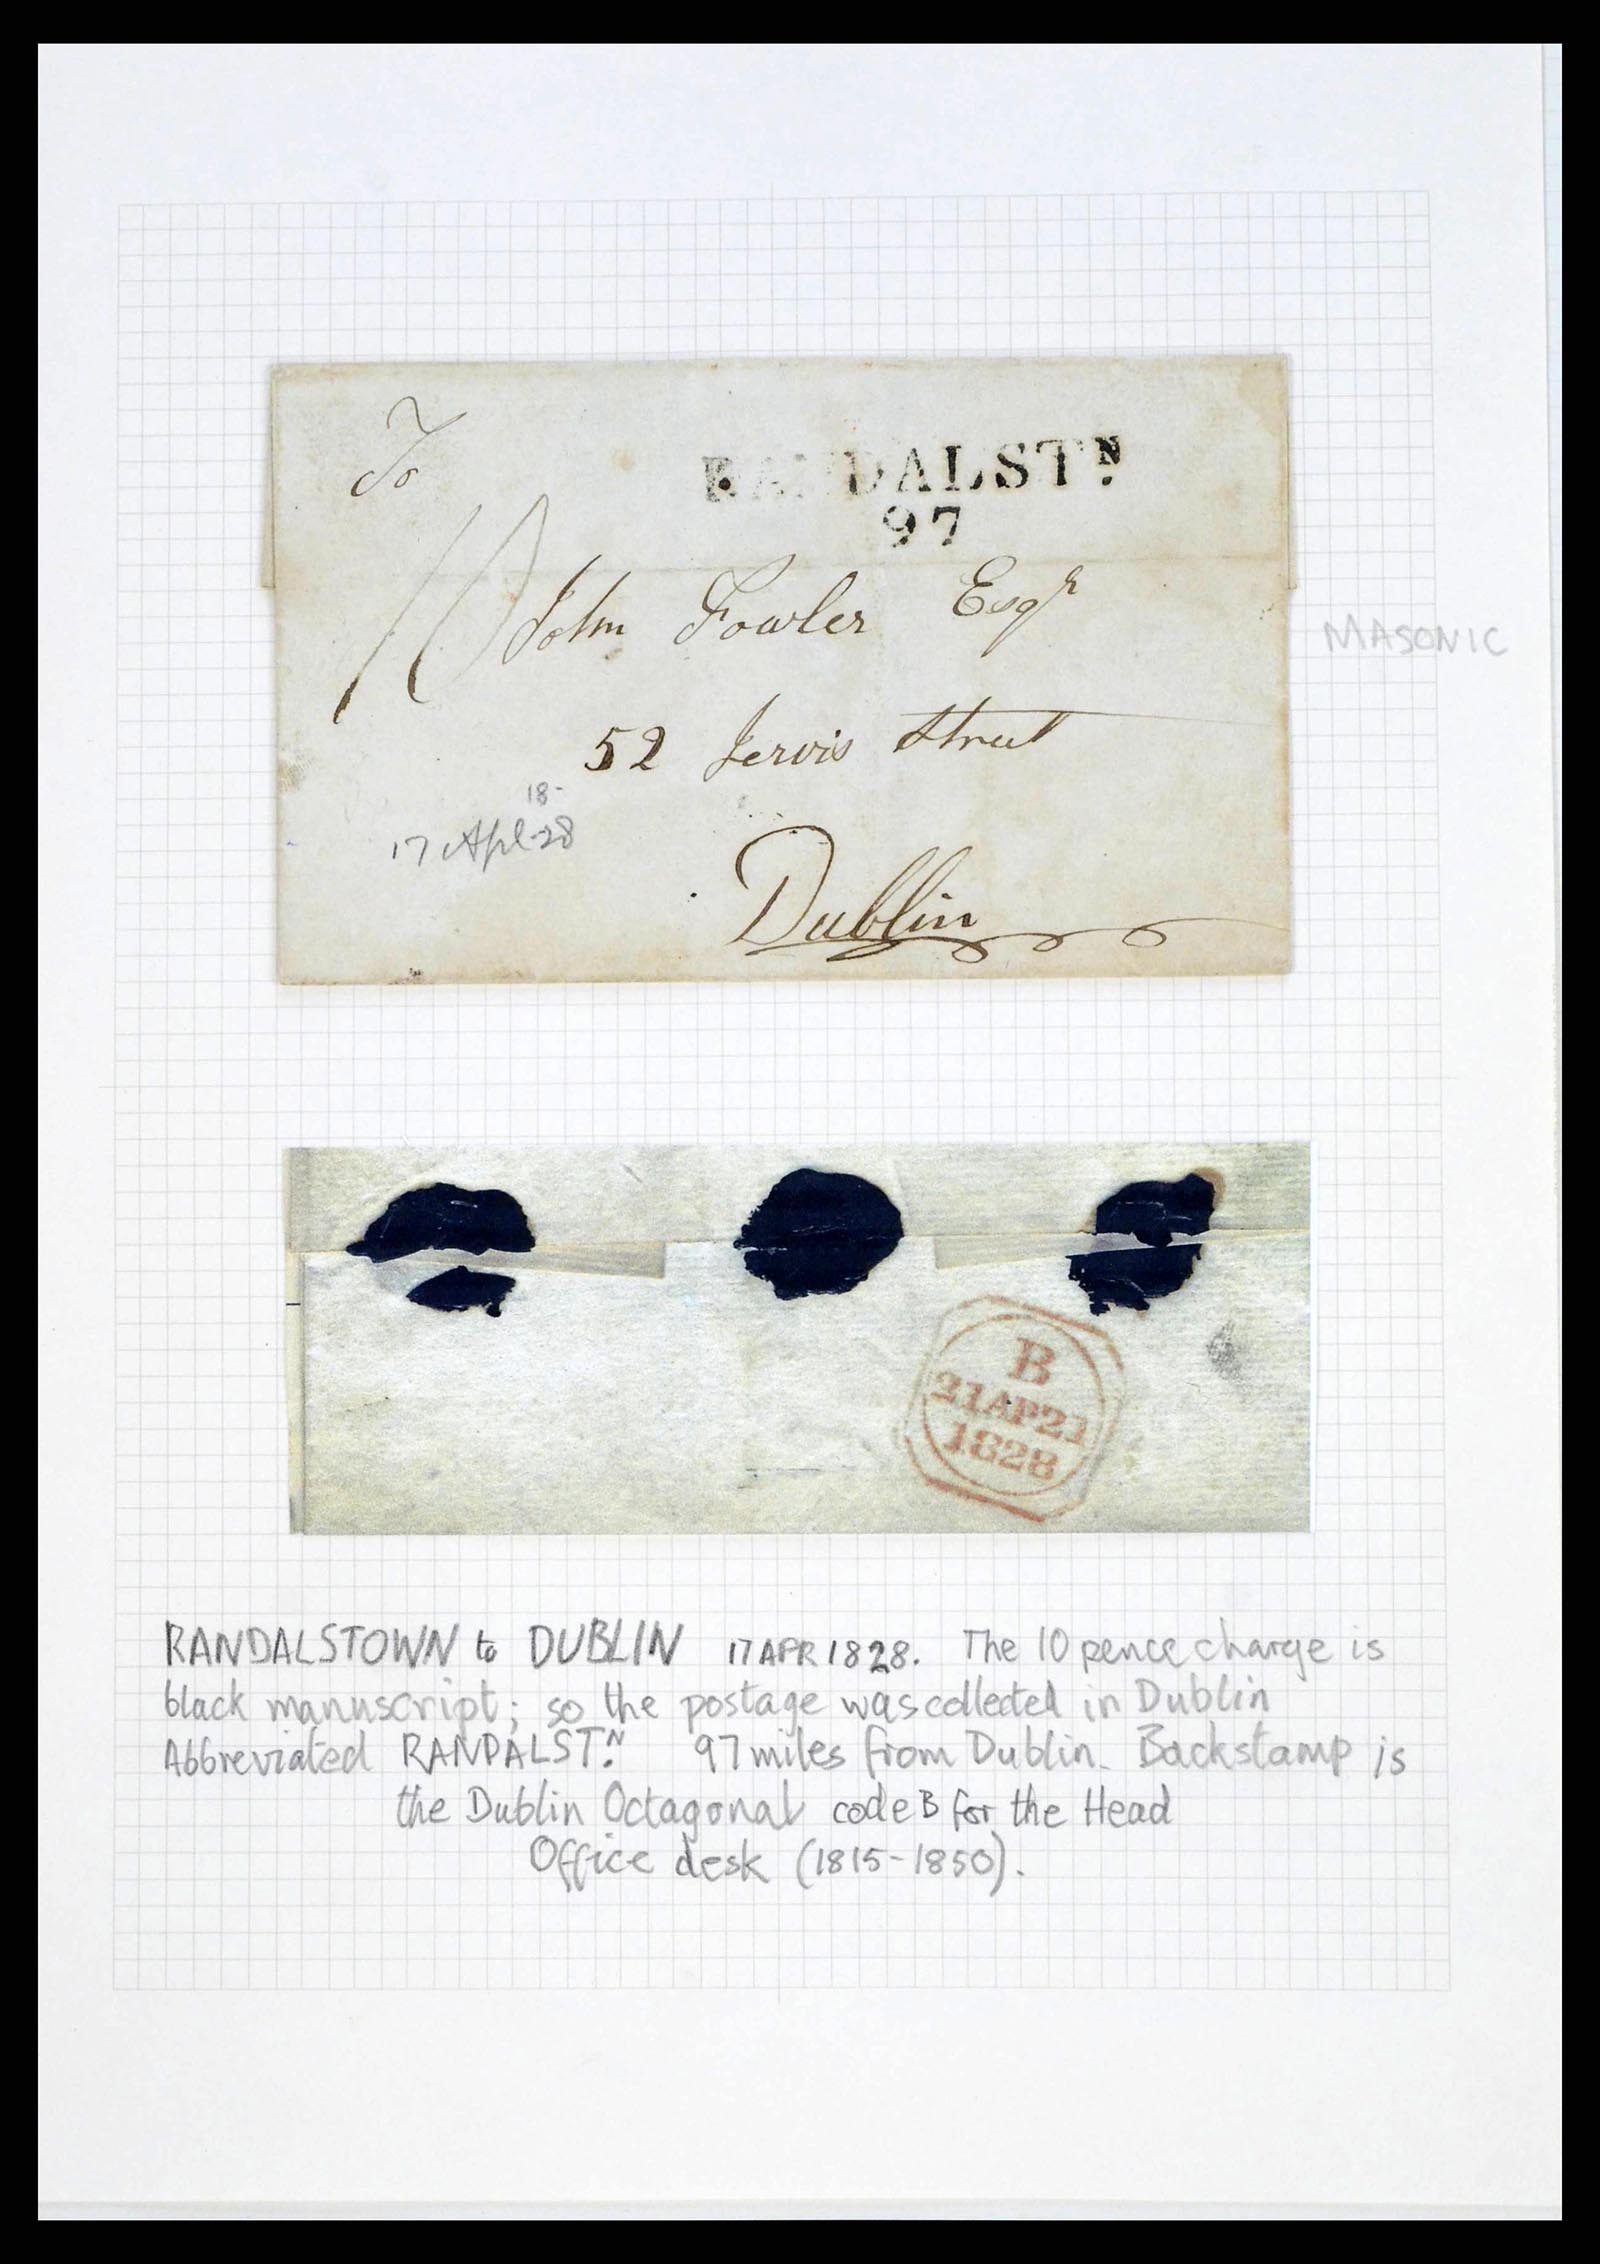 To
RANDALSTᴺ.
97
10
John Fowler Esqʳ
MASONIC
52 Jervis Street
18-
17 Apl 28
Dublin
B
21AP21
1828
RANDALSTOWN to DUBLIN 17 APR 1828. The 10 pence charge is
black manuscript; so the postage was collected in Dublin
Abbreviated RANDALSTᴺ. 97 miles from Dublin. Backstamp is
the Dublin Octagonal code B for the Head
Office desk (1815-1850).